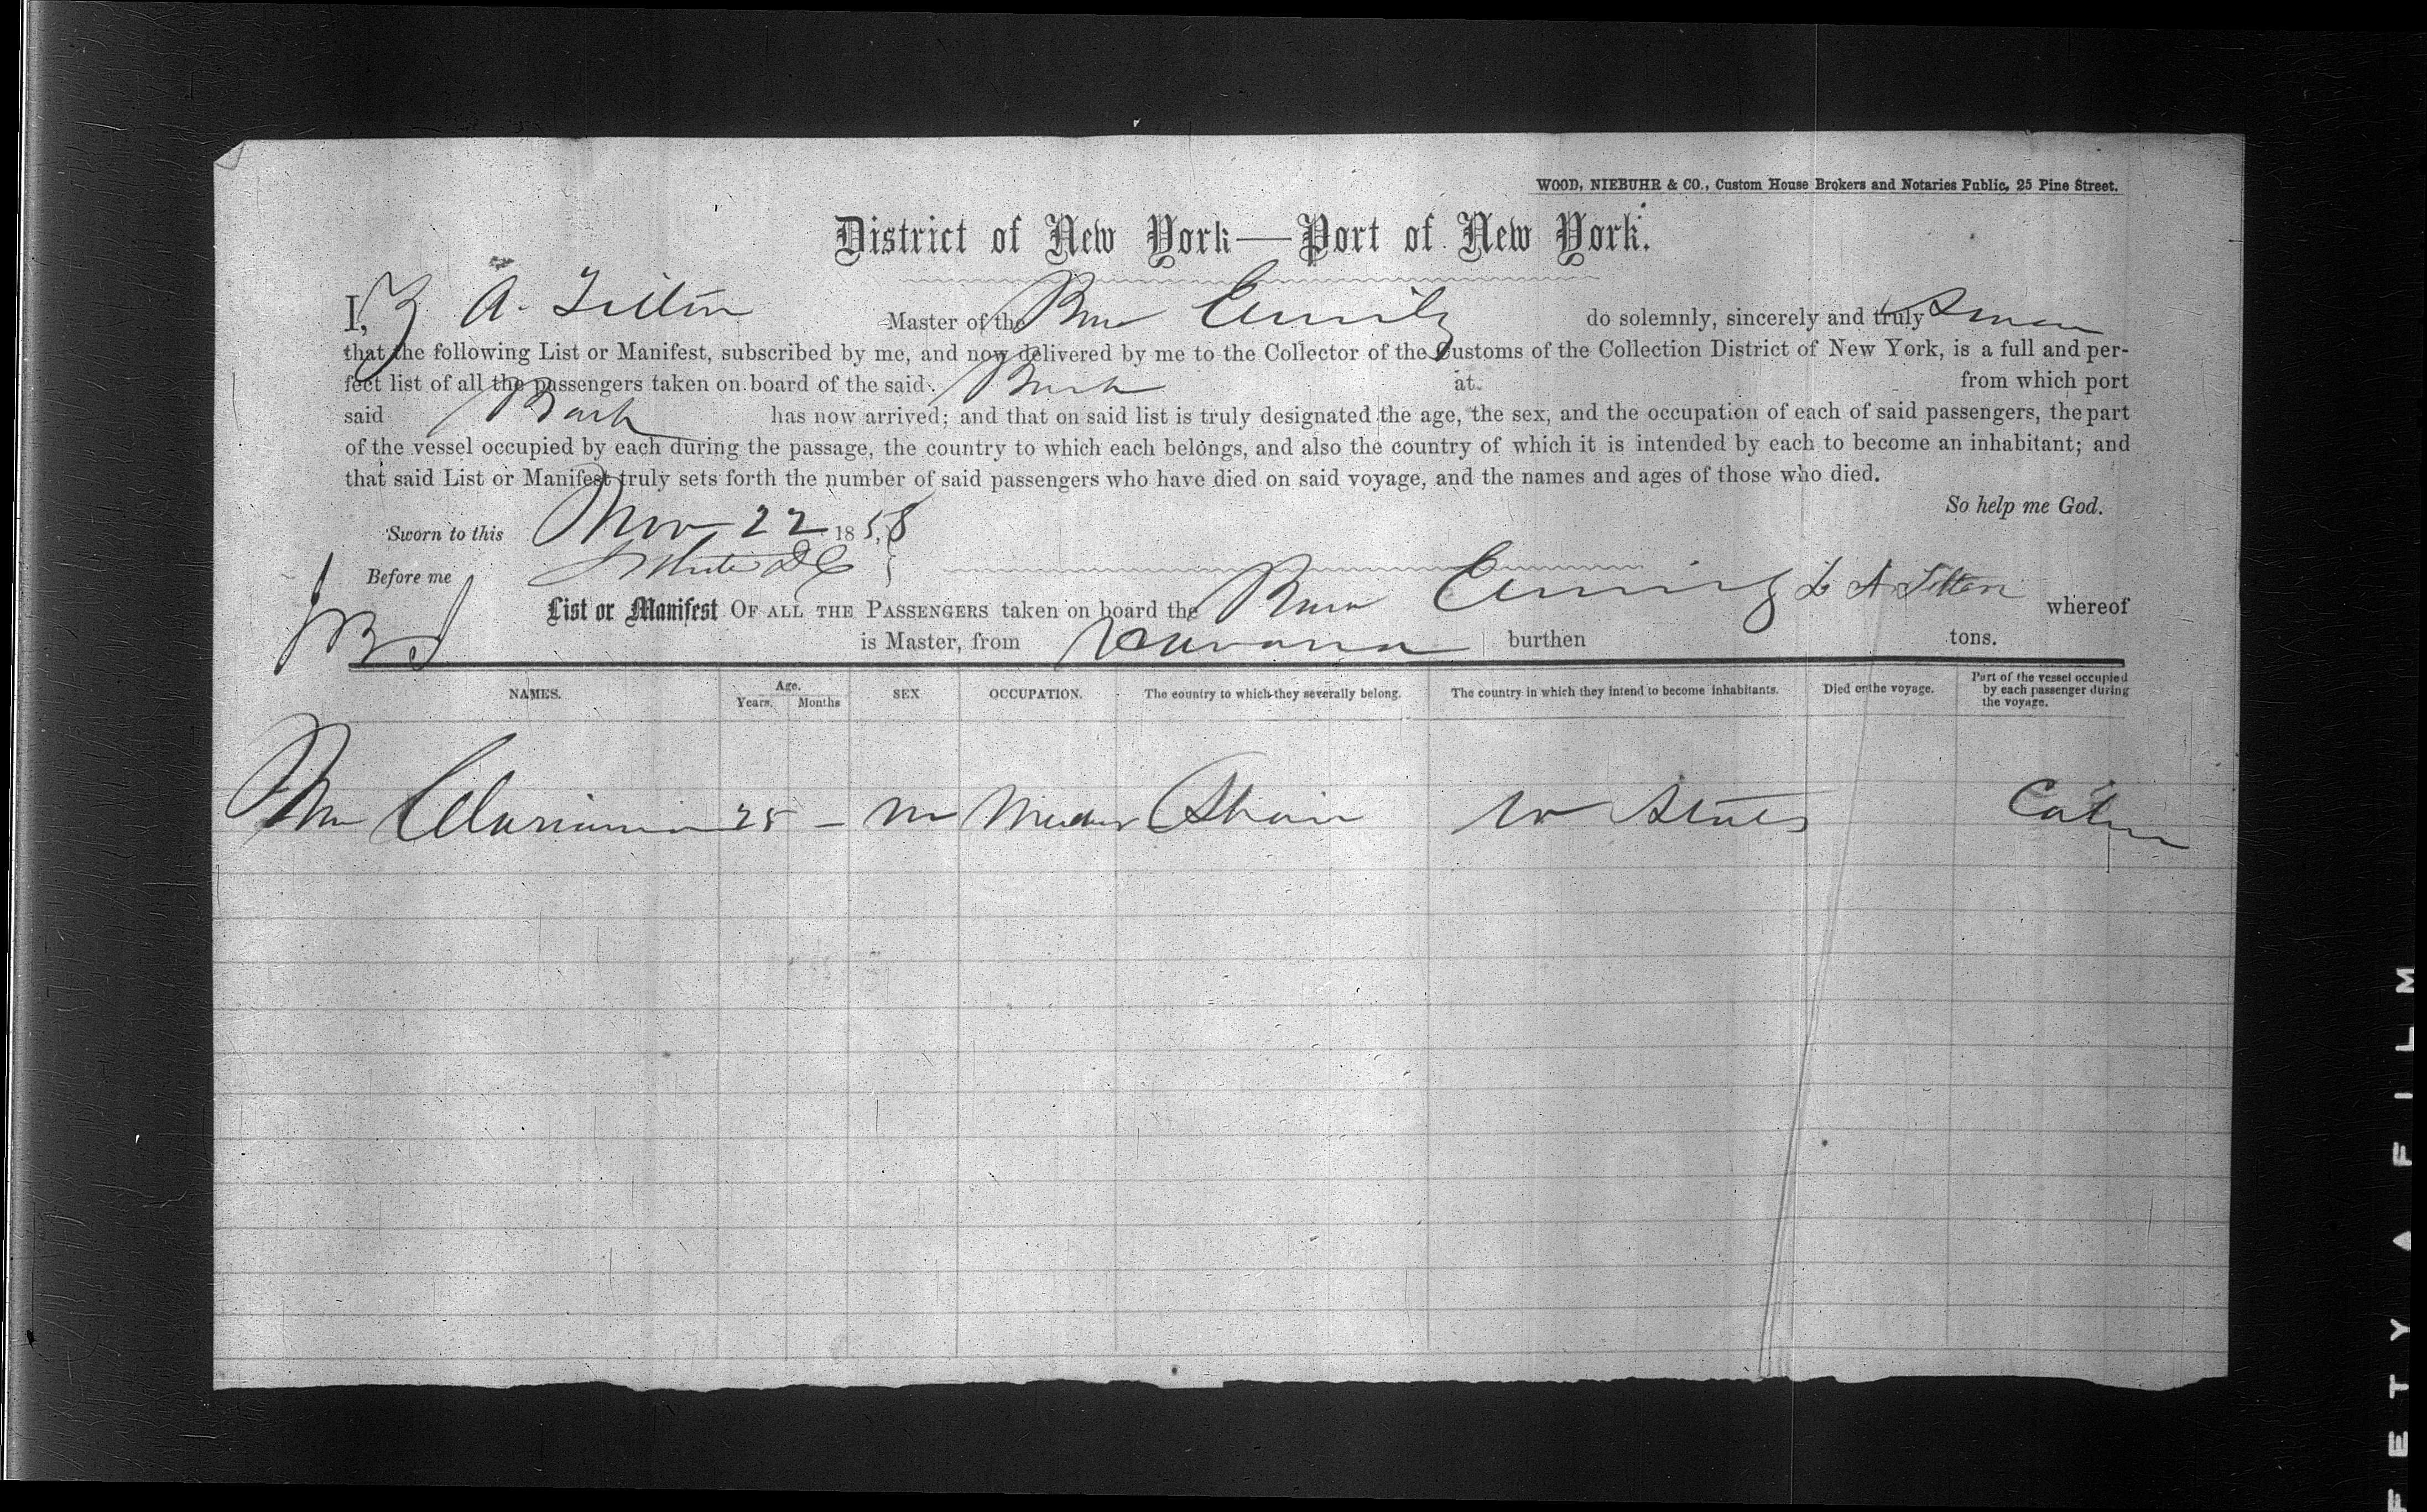 WOOD, NIEBUHR & CO., Custom House Brokers and Notaries Public, 25 Pine Street.
District of New York—Port of New York.
I, Z A. Tilton Master of the Emily do solemnly, sincerely and truly Swear
that the following List or Manifest, subscribed by me, and now delivered by me to the Collector of the Customs of the Collection District of New York, is a full and per-
fect list of all the passengers taken on board of the said Bark at from which port
said Bark has now arrived; and that on said list is truly designated the age, the sex, and the occupation of each of said passengers, the part
of the vessel occupied by each during the passage, the country to which each belongs, and also the country of which it is intended by each to become an inhabitant; and
that said List or Manifest truly sets forth the number of said passengers who have died on said voyage, and the names and ages of those who died.
So help me God.
Sworn to this Nov 22 1858
Before me
List or Manifest OF ALL THE PASSENGERS taken on board the Emily Z A Tilton whereof
is Master, from Havana burthen tons.
NAMES. Age. Years. Months SEX OCCUPATION. The country to which they severally belong. The country in which they intend to become inhabitants. Died on the voyage. Part of the vessel occupied by each passenger during the voyage.
25 — m Spain U States Cabin
SAFETY A FILM